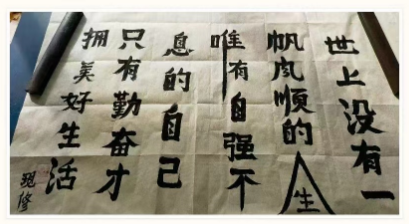 世上没有一
帆风顺的人生
唯有自强不
息的自己
只有勤奋才
拥美好生活